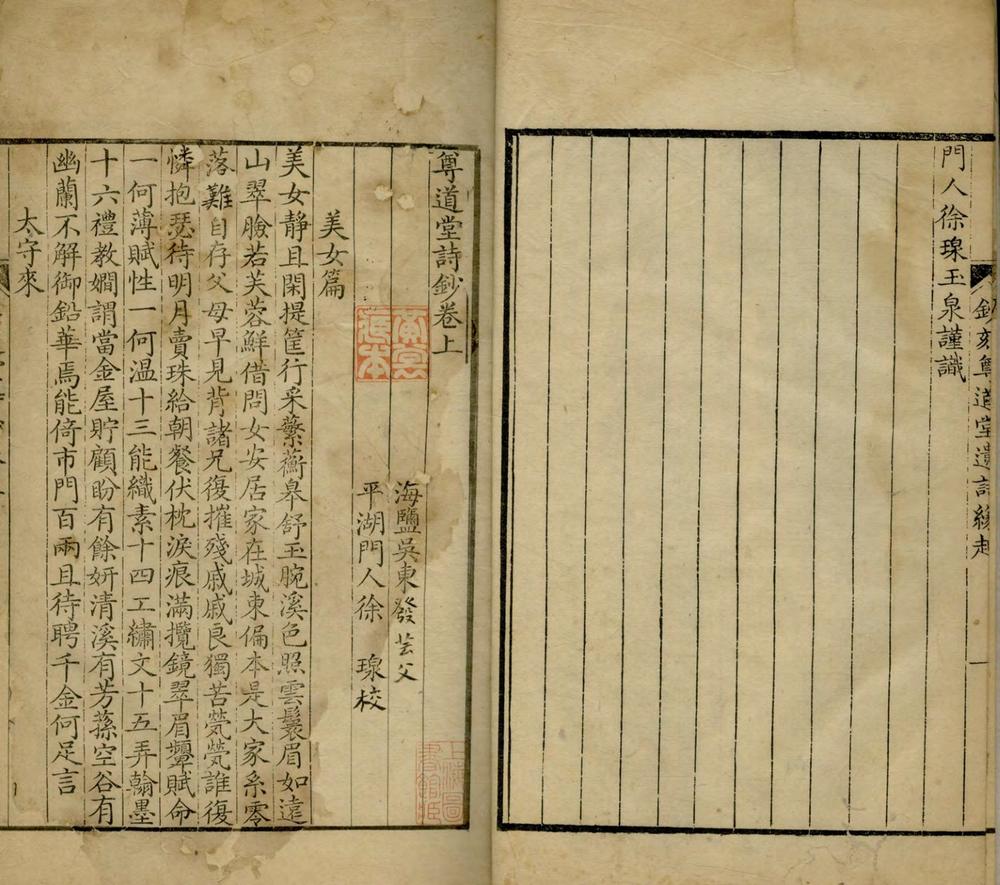 門人徐瑔玉泉謹識
鈔刻尊道堂遺詩緣起
一
尊道堂詩鈔卷上
海鹽吳東發芸父
平湖門人徐 瑔校
美女篇
美女静且閑提筐行采蘩蘅皋舒玉腕溪色照雲鬟眉如遠
山翠臉若芙蓉鮮借問女安居家在城東偏本是大家系零
落難自存父母早見背諸兄復摧殘戚戚良獨苦煢煢誰復
憐抱瑟待明月賣珠給朝餐伏枕淚痕滿攬鏡翠眉顰賦命
一何薄賦性一何温十三能織素十四工繡文十五弄翰墨
十六禮教嫺謂當金屋貯顧盼有餘妍清溪有芳蓀空谷有
幽蘭不解御鉛華焉能倚市門百兩且待聘千金何足言
太守來
上海圖
書館藏